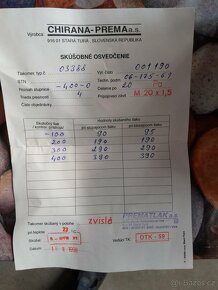 Výrobca CHIRANA-PREMA a.s.
916 01 STARÁ TURÁ, SLOVENSKÁ REPUBLIKA
SKÚŠOBNÉ OSVEDČENIE
Tlakomer, typ č. 03366 Výr. číslo 001190
STN Techn. podm. 06-175-67
Rozsah stupnice -400-0 Delenie po 20
Trieda presnosti 4 Prípojný závit M 20 x 1,5
Číslo objednávky:
Skutočný tlak Hodnoty skúšaného tlaku
pri stúpajúcom tlaku pri klesajúcom tlaku
-100 90 95
200 190 190
300 290 290
400 390 390
Tlakomer skúšaný v polohe zvislá
pri teplote 23
PREMATLAK a.s.
Vedúci TK: OTK - 59